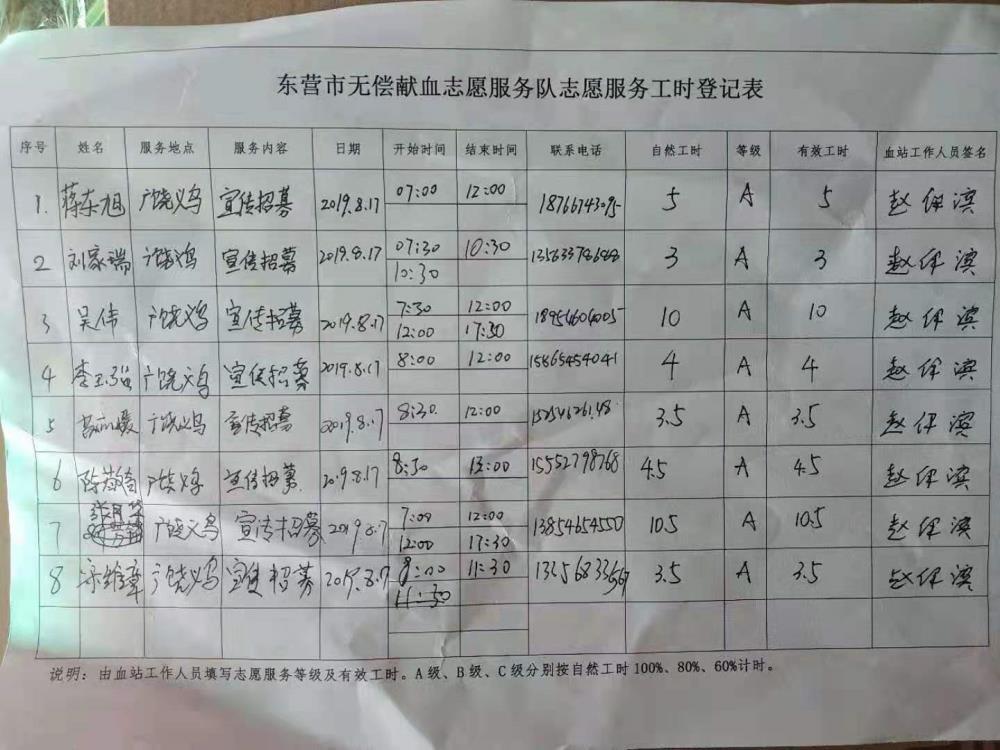 东营市无偿献血志愿服务队志愿服务工时登记表
序号 姓名 服务地点 服务内容 日期 开始时间 结束时间 联系电话 自然工时 等级 有效工时 血站工作人员签名
1. 蒋东旭 广饶义乌 宣传招募 2019.8.17 07:00 12:00 5 A 5
2 刘家瑞 广饶义乌 宣传招募 2019.8.17 07:30 10:30 13563378688 3 A 3
10:30
3 吴伟 广饶义乌 宣传招募 2019.8.17 7:30 12:00 18954604005 10 A 10
12:00 17:30
4 广饶义乌 宣传招募 2019.8.17 8:00 12:00 15865454041 4 A 4
5 广饶义乌 宣传招募 2019.8.17 8:30 12:00 3.5 A 3.5
6 广饶义乌 宣传招募 2019.8.17 8:30 13:00 15552798768 4.5 A 4.5
7 广饶义乌 宣传招募 2019.8.17 7:00 12:00 13854654550 10.5 A 10.5
12:00 17:30
8 广饶义乌 宣传招募 2019.8.17 8:00 11:30 3.5 A 3.5
11:30
说明：由血站工作人员填写志愿服务等级及有效工时。A级、B级、C级分别按自然工时100%、80%、60%计时。